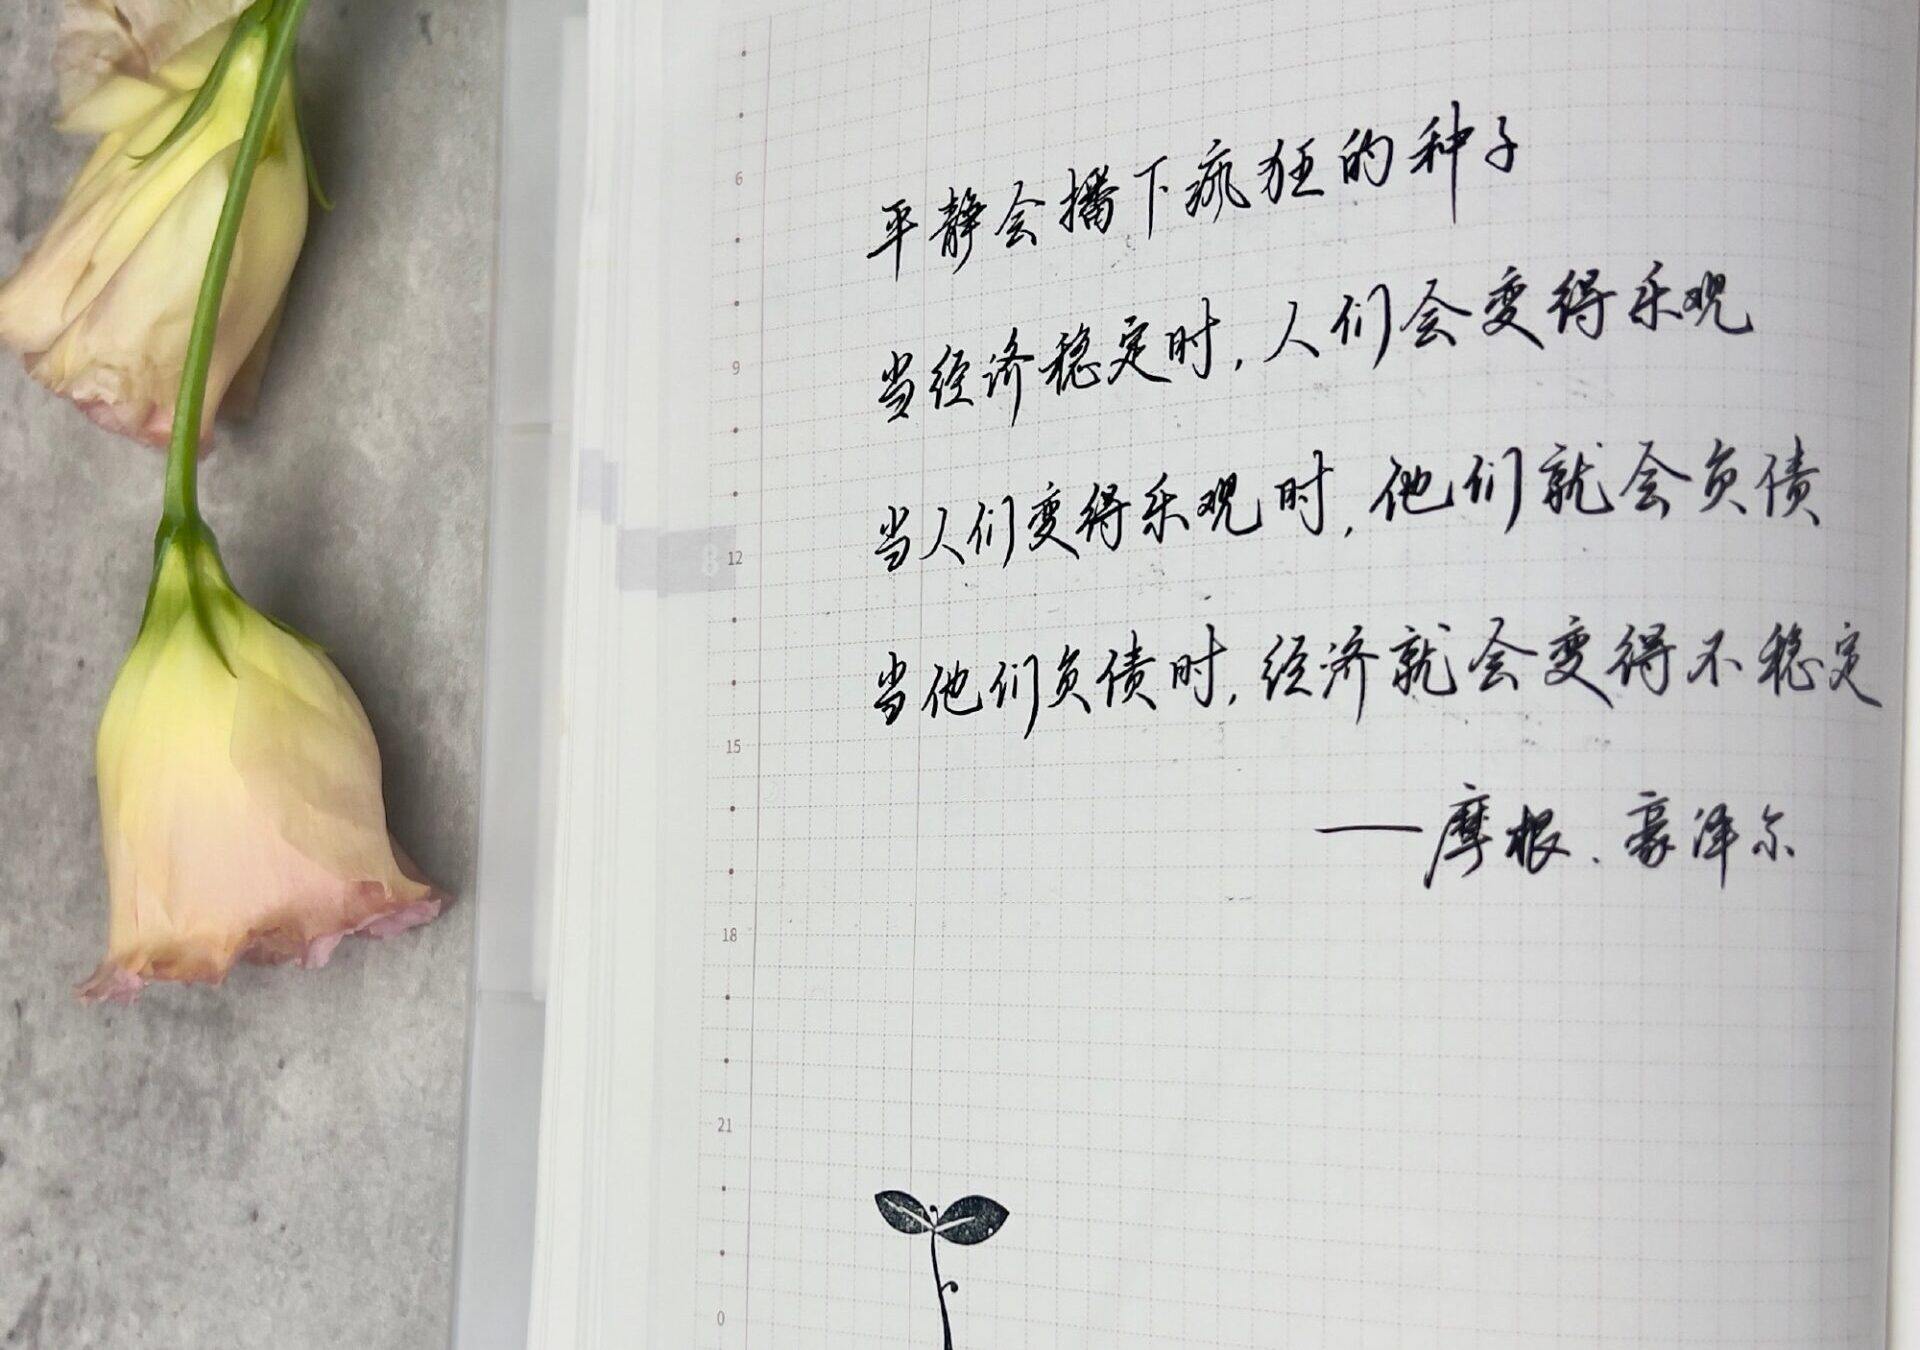 平静会播下疯狂的种子
当经济稳定时,人们会变得乐观
当人们变得乐观时,他们就会负债
当他们负债时,经济就会变得不稳定
——摩根、豪泽尔
6
9
8
12
15
18
21
0